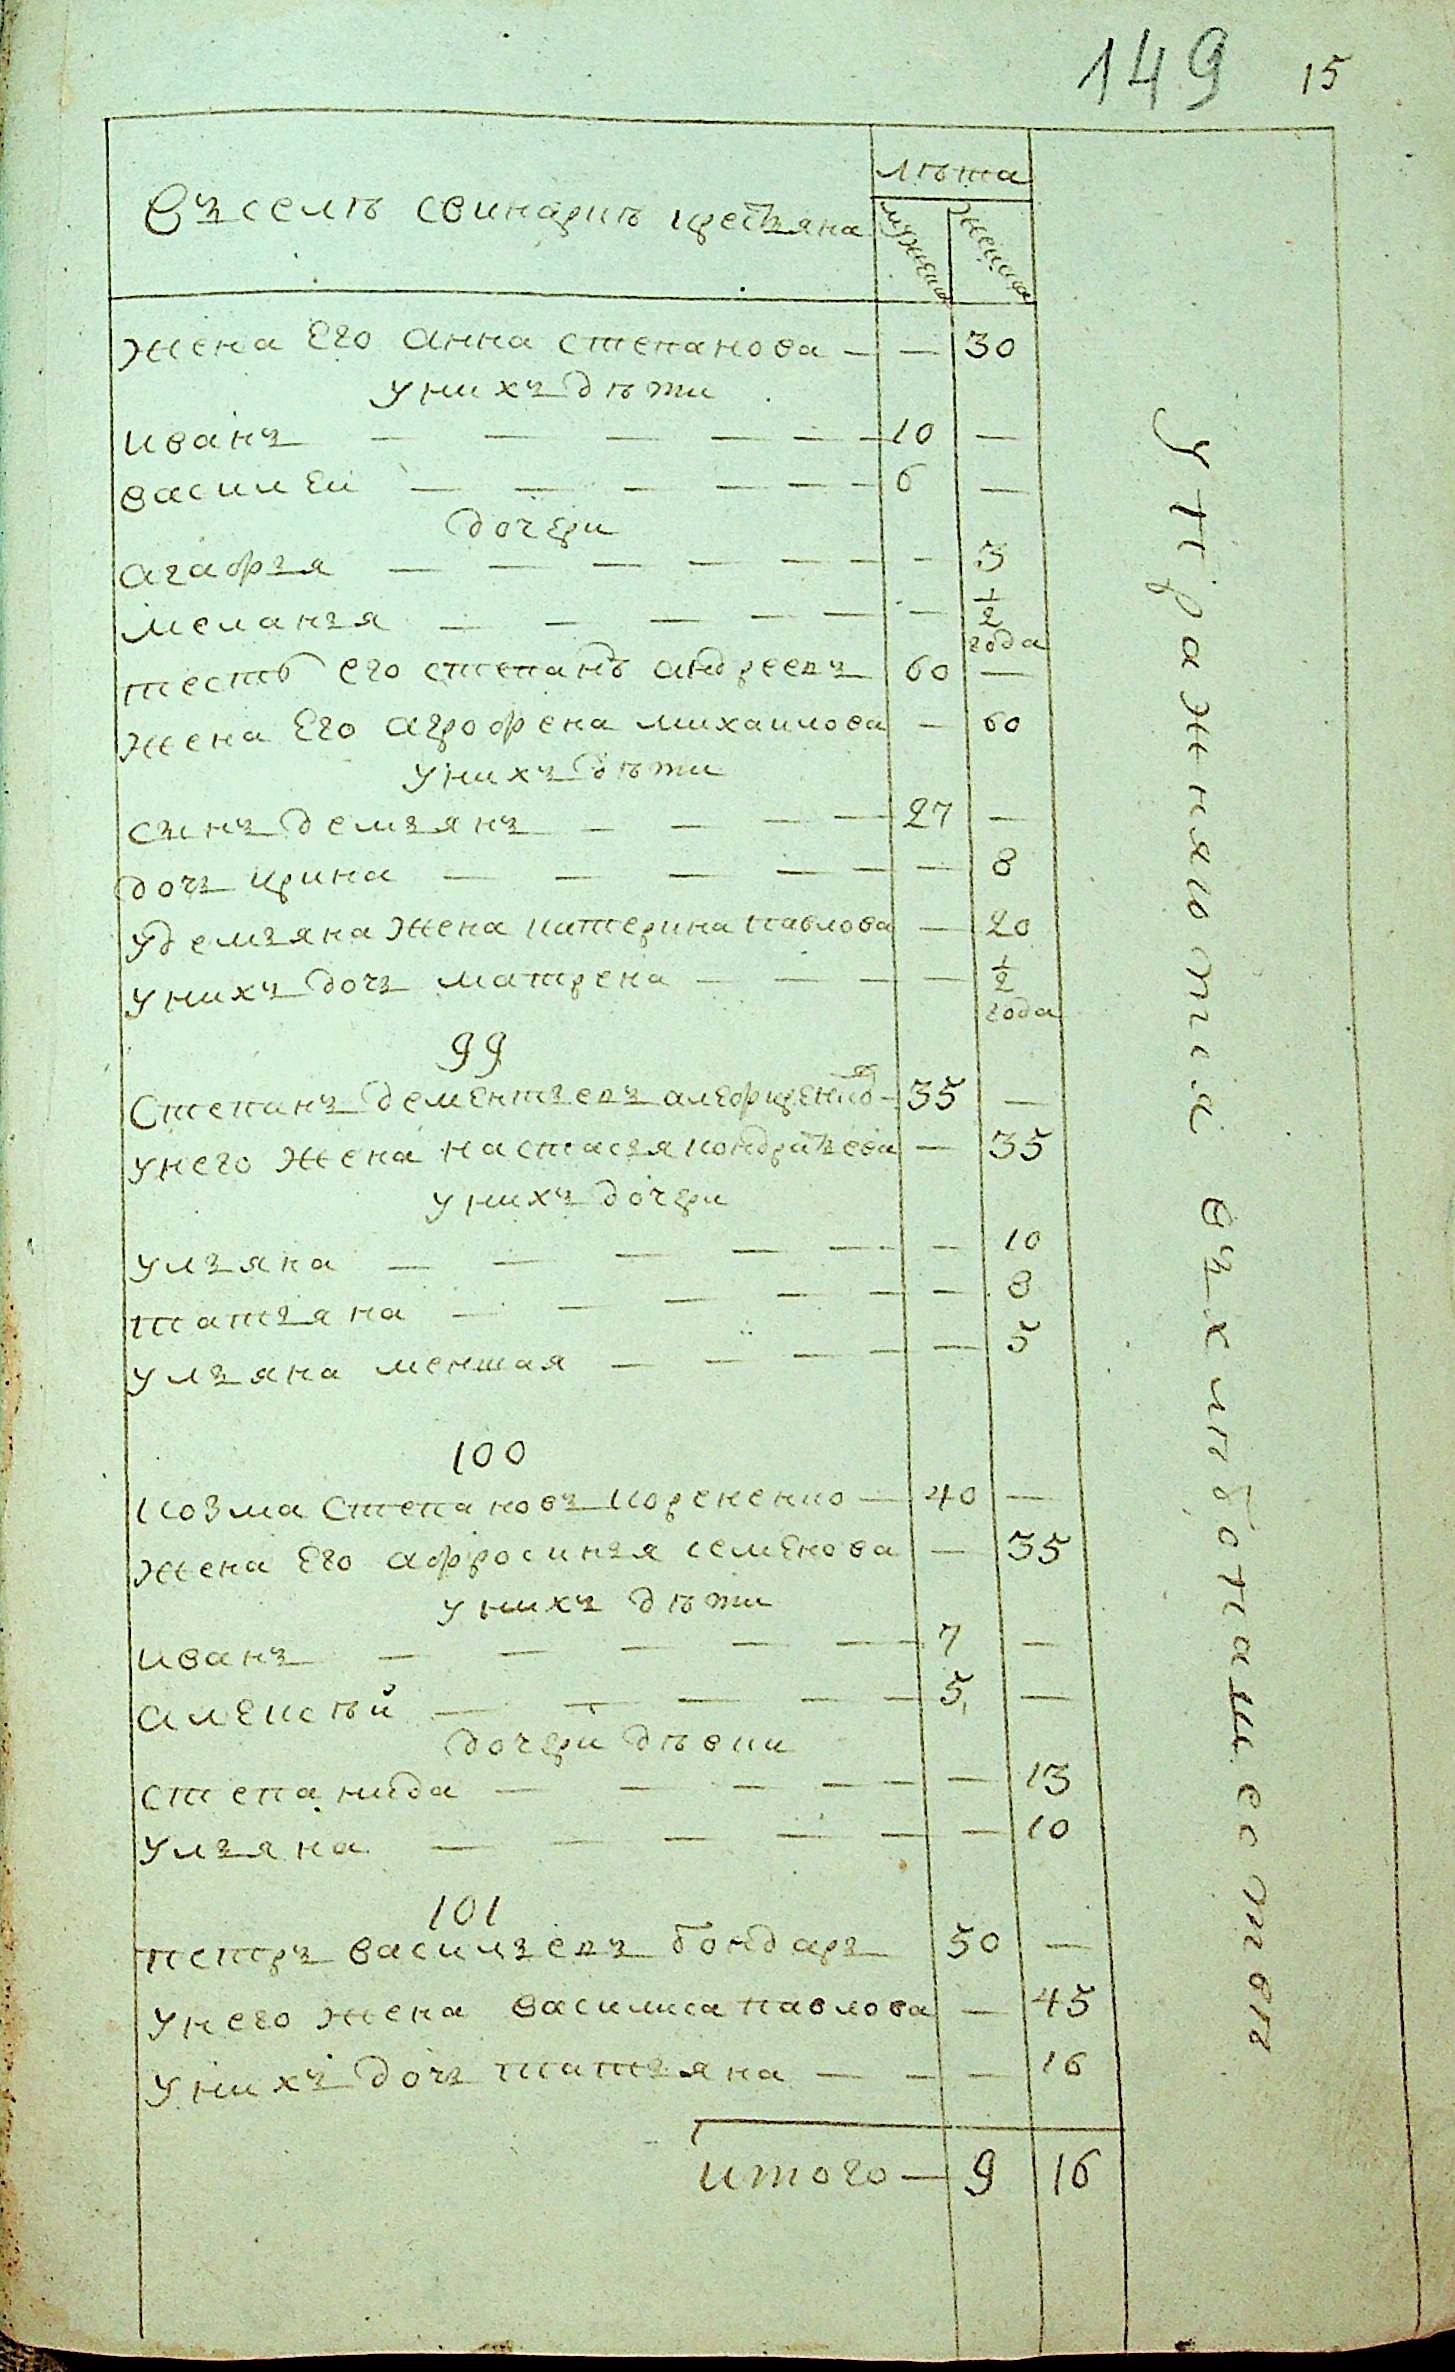 149 15
Въ селѣ Свинарнѣ крестьяна
лѣта
мужеска
женска
жена Его Анна Степанова — — 30
у нихъ дѣти
Иванъ — — — — — — 10 —
Василей — — — — — — 6 —
дочери
Агафья — — — — — — — 3
Меланья — — — — — — 1/2
года
тесть его Степанъ Андреевъ 60 —
жена Его Агрофена Михаилова — 60
у нихъ дѣти
сынъ Демьянъ — — — — 27 —
дочь Ирина — — — — — — 8
у Демьяна жена Катерина Павлова — 20
у нихъ дочь Матрена — — — — 1/2
года
99
Степанъ Дементьевъ 35 —
у него жена Настасья Кондратьева — 35
у нихъ дочери
Ульяна — — — — — — 10
Татьяна — — — — — — 8
Ульяна меншая — — — — — 5
100
Козма Степановъ Корененко — 40 —
жена Его Афросинья Семенова — 35
у нихъ дѣти
Иванъ — — — — — 7 —
Алексѣй — — — — — 5 —
дочери дѣвки
Степанида — — — — — — 13
Ульяна — — — — — — 10
101
Петръ Васильевъ Бондарь 50 —
у него жена Василиса Павлова — 45
у нихъ дочь Татьяна — — — 16
итого — 9 16
Упражняются въ хлѣбопашествѣ